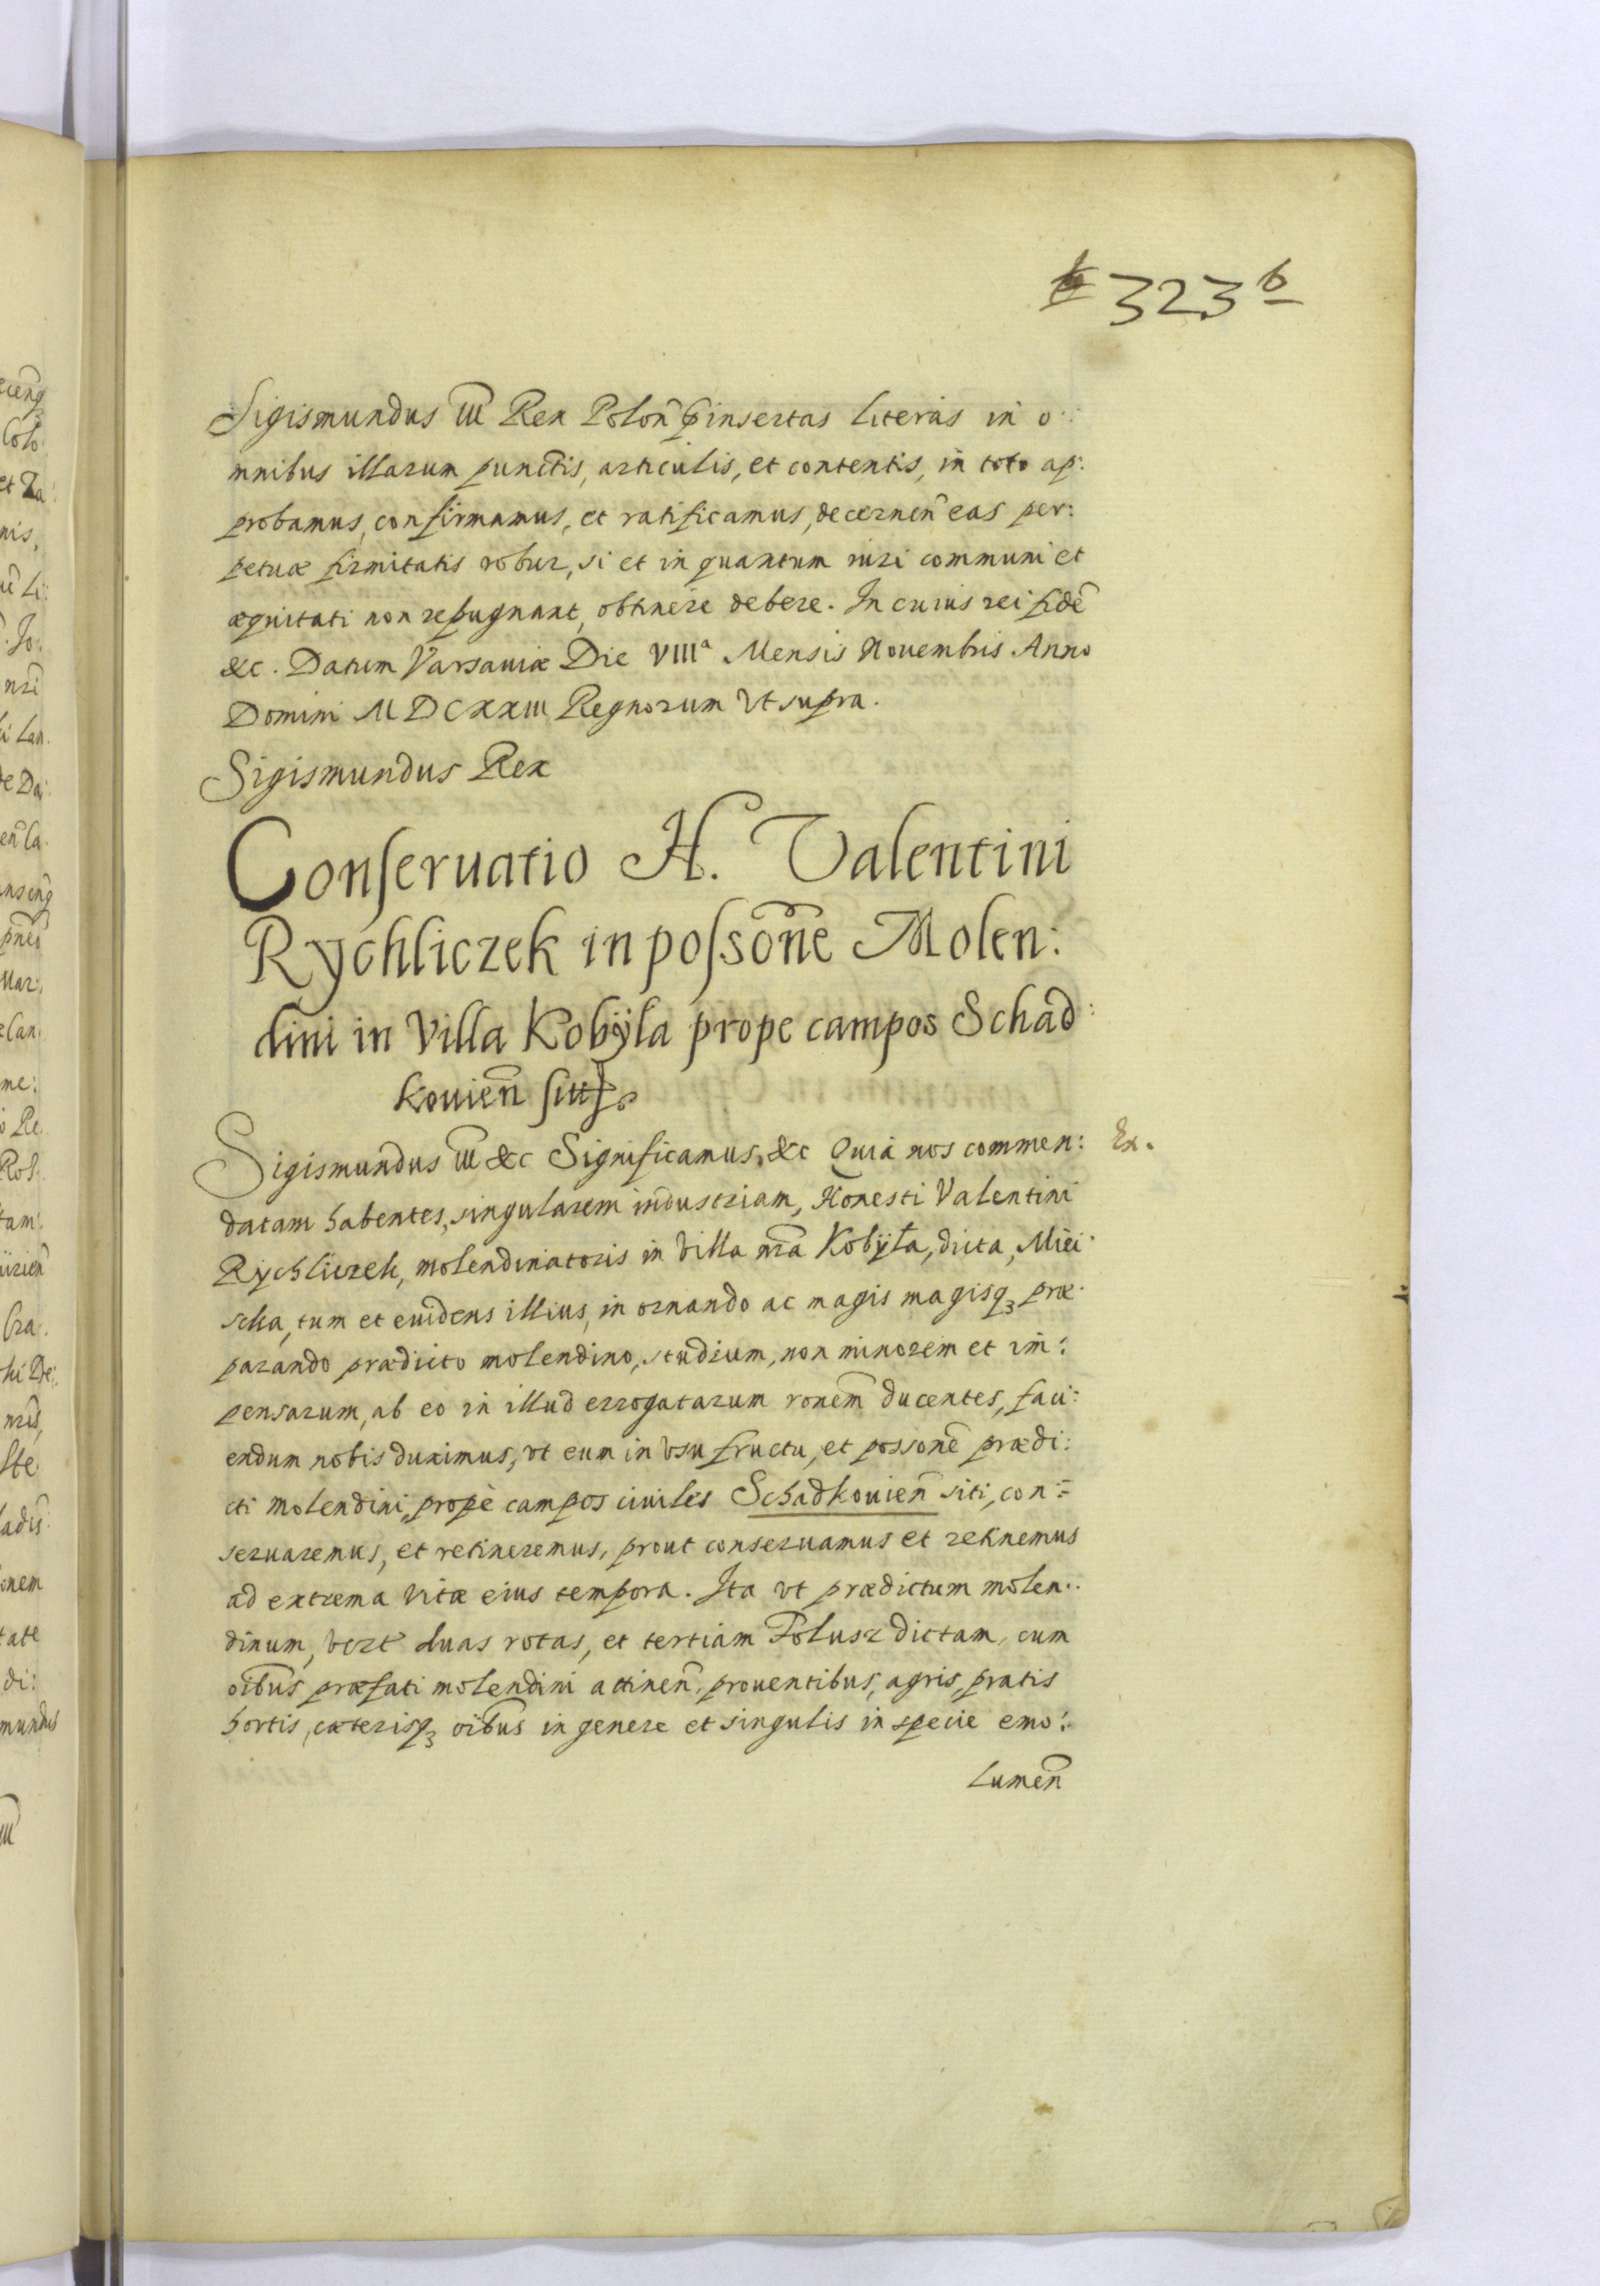 323 b
Sigismundus III Rex Polon̄ p̄insertas literas in o:
mnibus illarum punctis, articulis, et contentis, in toto ap:
probamus, confirmamus, et ratificamus, decernen̄ eas per:
petuæ firmitatis robur, si et in quantum iuri communi et
æquitati non repugnant, obtinere debere. In cuius rei fidē
&c. Datum Varsauiæ Die VIIIª Mensis Nouembris Anno
Domini MDCXXIII Regnorum vt supra.
Sigismundus Rex
Conseruatio H. Valentini
Rychliczek in possōne Molen:
dini in Villa Kobÿla prope campos Schad:
kouien̄ siti
Sigismundus III &c Significamus, &c Quia nos commen:
Ex.
datam habentes, singularem industriam, Honesti Valentini
Rychliczek, molendinatoris in Villa nr̄a Kobÿła, dicta, Miei:
ska, tum et euidens illius, in ornando ac magis magisq₃ præ:
parando prædicto molendino, studium, non minorem et im:
pensarum, ab eo in illud errogatarum ronem̄ ducentes, faci:
endum nobis duximus, vt eum in vsufructu, et possonē prædi:
cti molendini, propè campos ciuiles Schadkouien̄ siti, con:
seruaremus, et retineremus, prout conseruamus et retinemus
ad extrema vitæ eius tempora. Ita vt prædictum molen:
dinum, duas rotas, et tertiam Folusz dictam, cum
oībus præfati molendini attinen̄, prouentibus, agris, pratis
hortis, cæterisq₃ oībus in genere et singulis in specie emo:
lumen̄